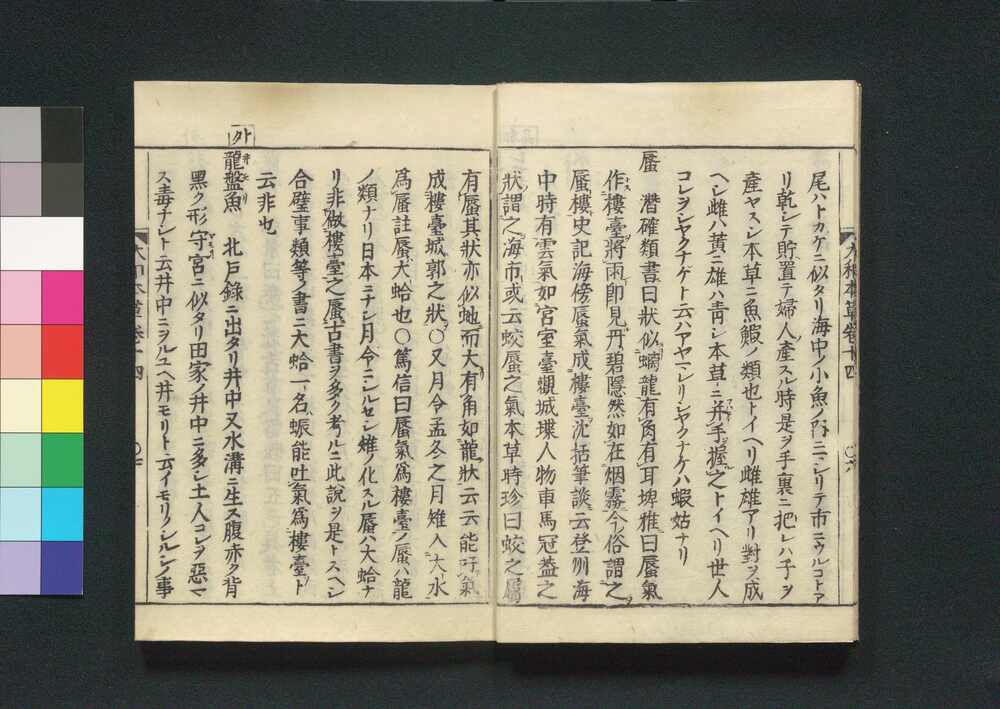 尾ハトカゲニ似タリ海中ノ小魚ノ內ニマシリテ市ニウルコトア
リ乾シテ貯置テ婦人產スル時是ヲ手裏ニ把レハ子ヲ
產ヤスシ本草ニ魚鰕ノ類也トイヘリ雌雄アリ對ヲ成
ヘシ雌ハ黃ニ雄ハ青シ本草ニ并手握之トイヘリ世人
コレヲシヤクナゲト云ハアヤマレリシヤクナケハ蝦姑ナリ
蜃 潛確類書曰狀似螭龍有角有耳埤雅曰蜃氣
作樓臺將雨卽見丹碧隱然如在烟霧今俗謂之
蜃樓史記海傍蜃氣成樓臺沈括筆談云登州海
中時有雲氣如宮室臺觀城堞人物車馬冠蓋之
狀謂之海市或云蛟蜃之氣本草時珍曰蛟之屬
大和本草卷十四
有蜃其狀亦似虵而大有角如龍狀云云能吁氣
成樓臺城郭之狀〇又月令孟冬之月雉入大水
爲蜃註蜃大蛤也〇篤信曰蜃氣爲樓臺ノ蜃ハ龍
ノ類ナリ日本ニナシ月令ニシルセシ雉ノ化スル蜃ハ大蛤ナ
リ非做樓臺之蜃古書ヲ多ク考ルニ此說ヲ是トスヘシ
合璧事類等ノ書ニ大蛤一名蜄能吐氣爲樓臺ト
云非也
外
龍盤魚 北戶錄ニ出タリ井中又水溝ニ生ス腹赤ク背
黑ク形守宮ニ似タリ田家ノ井中ニ多シ土人コレヲ惡マ
ス毒ナシト云井中ニヲルユヘ井モリト云イモリノシルシノ事
大和本草卷十四